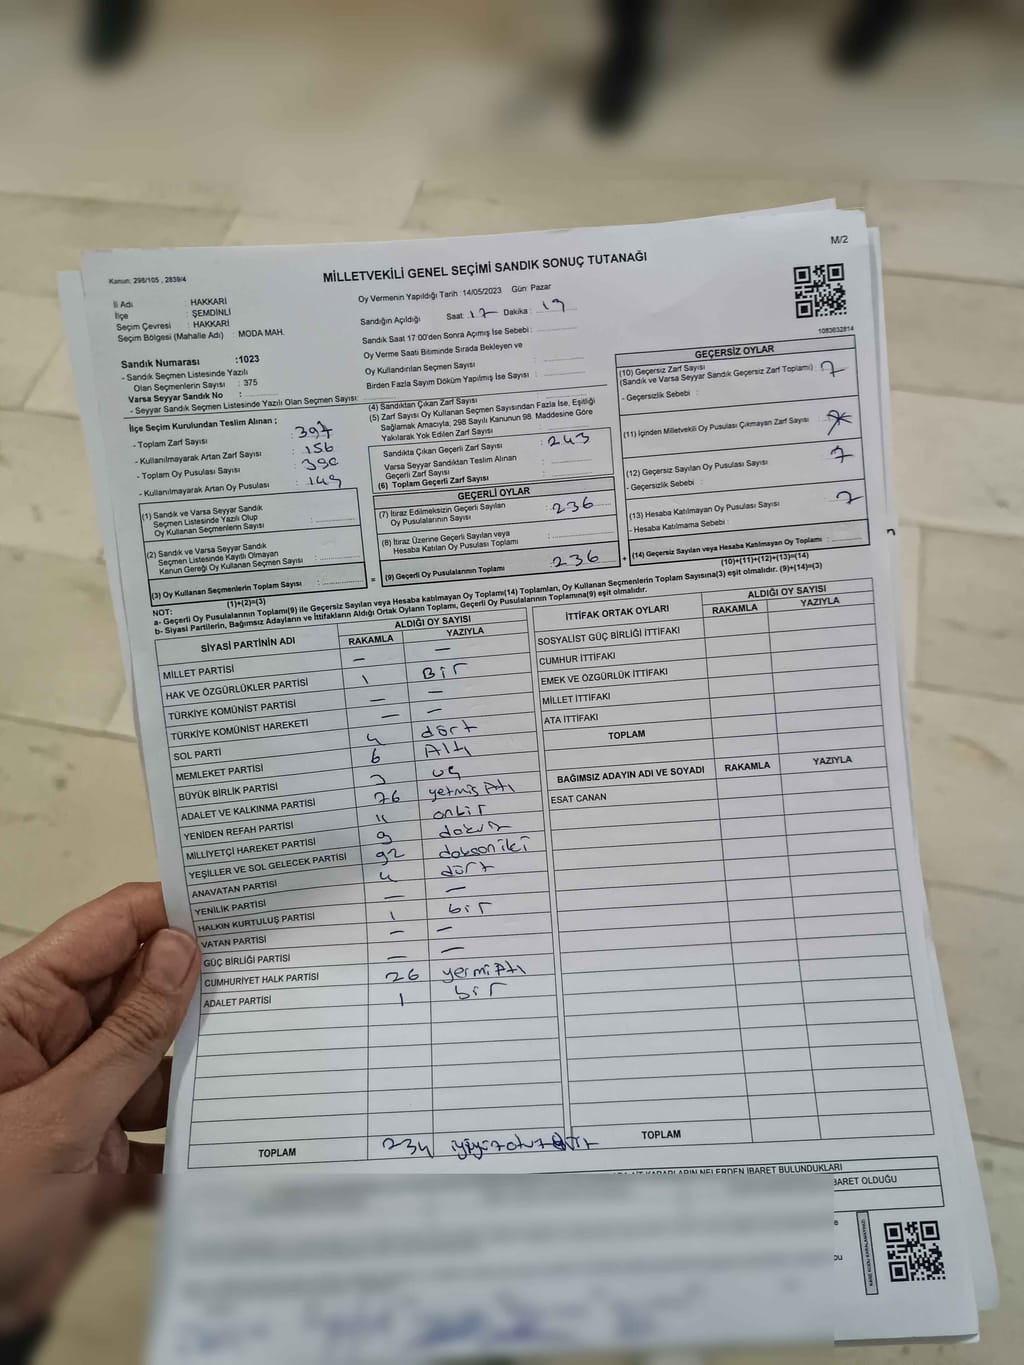 M/2
Kanun: 298/105 , 2839/4
MİLLETVEKİLİ GENEL SEÇİMİ SANDIK SONUÇ TUTANAĞI
İl Adı : HAKKARİ
İlçe : ŞEMDİNLİ
Seçim Çevresi : HAKKARİ
Seçim Bölgesi (Mahalle Adı) : MODA MAH.
Oy Vermenin Yapıldığı Tarih :14/05/2023 Gün: Pazar
Sandığın Açıldığı Saat: 17 Dakika : 19
Sandık Saat 17:00'den Sonra Açımış İse Sebebi :
Oy Verme Saati Bitiminde Sırada Bekleyen ve
Oy Kullandırılan Seçmen Sayısı :
Birden Fazla Sayım Döküm Yapılmış İse Sayısı :
1083632814
Sandık Numarası :1023
- Sandık Seçmen Listesinde Yazılı
Olan Seçmenlerin Sayısı : 375
Varsa Seyyar Sandık No :
- Seyyar Sandık Seçmen Listesinde Yazılı Olan Seçmen Sayısı:
İlçe Seçim Kurulundan Teslim Alınan ;
- Toplam Zarf Sayısı : 397
- Kullanılmayarak Artan Zarf Sayısı : 156
- Toplam Oy Pusulası Sayısı : 390
- Kullanılmayarak Artan Oy Pusulası : 149
(1) Sandık ve Varsa Seyyar Sandık
Seçmen Listesinde Yazılı Olup
Oy Kullanan Seçmenlerin Sayısı :
(2) Sandık ve Varsa Seyyar Sandık
Seçmen Listesinde Kayıtlı Olmayan
Kanun Gereği Oy Kullanan Seçmen Sayısı :
(3) Oy Kullanan Seçmenlerin Toplam Sayısı :
(1)+(2)=(3)
(4) Sandıktan Çıkan Zarf Sayısı :
(5) Zarf Sayısı Oy Kullanan Seçmen Sayısından Fazla İse, Eşitliği
Sağlamak Amacıyla, 298 Sayılı Kanunun 98. Maddesine Göre
Yakılarak Yok Edilen Zarf Sayısı :
Sandıkta Çıkan Geçerli Zarf Sayısı : 243
Varsa Seyyar Sandıktan Teslim Alınan
Geçerli Zarf Sayısı :
(6) Toplam Geçerli Zarf Sayısı :
GEÇERLİ OYLAR
(7) İtiraz Edilmeksizin Geçerli Sayılan
Oy Pusulalarının Sayısı : 236
(8) İtiraz Üzerine Geçerli Sayılan veya
Hesaba Katılan Oy Pusulası Toplamı :
(9) Geçerli Oy Pusulalarının Toplamı : 236
GEÇERSİZ OYLAR
(10) Geçersiz Zarf Sayısı : 7
(Sandık ve Varsa Seyyar Sandık Geçersiz Zarf Toplamı)
- Geçersizlik Sebebi :
(11) İçinden Milletvekili Oy Pusulası Çıkmayan Zarf Sayısı :
(12) Geçersiz Sayılan Oy Pusulası Sayısı : 7
- Geçersizlik Sebebi :
(13) Hesaba Katılmayan Oy Pusulası Sayısı : 7
- Hesaba Katılmama Sebebi :
(14) Geçersiz Sayılan veya Hesaba Katılmayan Oy Toplamı :
(10)+(11)+(12)+(13)=(14)
NOT:
a- Geçerli Oy Pusulalarının Toplamı(9) ile Geçersiz Sayılan veya Hesaba katılmayan Oy Toplamı(14) Toplamları, Oy Kullanan Seçmenlerin Toplam Sayısına(3) eşit olmalıdır. (9)+(14)=(3)
b- Siyasi Partilerin, Bağımsız Adayların ve İttifakların Aldığı Ortak Oyların Toplamı, Geçerli Oy Pusulalarının Toplamına(9) eşit olmalıdır.
SİYASİ PARTİNİN ADI ALDIĞI OY SAYISI
RAKAMLA YAZIYLA
MİLLET PARTİSİ — —
HAK VE ÖZGÜRLÜKLER PARTİSİ 1 Bir
TÜRKİYE KOMÜNİST PARTİSİ — —
TÜRKİYE KOMÜNİST HAREKETİ — —
SOL PARTİ 4 dört
MEMLEKET PARTİSİ 6 Altı
BÜYÜK BİRLİK PARTİSİ 3 üç
ADALET VE KALKINMA PARTİSİ 76 yetmiş Altı
YENİDEN REFAH PARTİSİ 11 onbir
MİLLİYETÇİ HAREKET PARTİSİ 9 dokuz
YEŞİLLER VE SOL GELECEK PARTİSİ 92 doksaniki
ANAVATAN PARTİSİ 4 dört
YENİLİK PARTİSİ — —
HALKIN KURTULUŞ PARTİSİ 1 bir
VATAN PARTİSİ — —
GÜÇ BİRLİĞİ PARTİSİ — —
CUMHURİYET HALK PARTİSİ 26 yermi Altı
ADALET PARTİSİ 1 bir
TOPLAM 234
İTTİFAK ORTAK OYLARI ALDIĞI OY SAYISI
RAKAMLA YAZIYLA
SOSYALİST GÜÇ BİRLİĞİ İTTİFAKI
CUMHUR İTTİFAKI
EMEK VE ÖZGÜRLÜK İTTİFAKI
MİLLET İTTİFAKI
ATA İTTİFAKI
TOPLAM
BAĞIMSIZ ADAYIN ADI VE SOYADI RAKAMLA YAZIYLA
ESAT CANAN
TOPLAM
KARARLARIN NELERDEN İBARET BULUNDUKLARI
BARET OLDUĞU